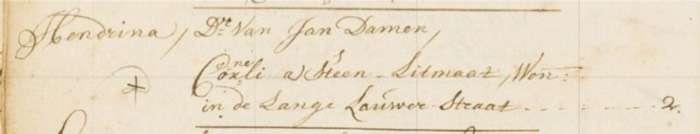 Hendrina, Dr. Van Jan Damen,
Cornli a Steen-Litmaat, Won:
in de Lange Lauwer-Straat - - - - - 2.